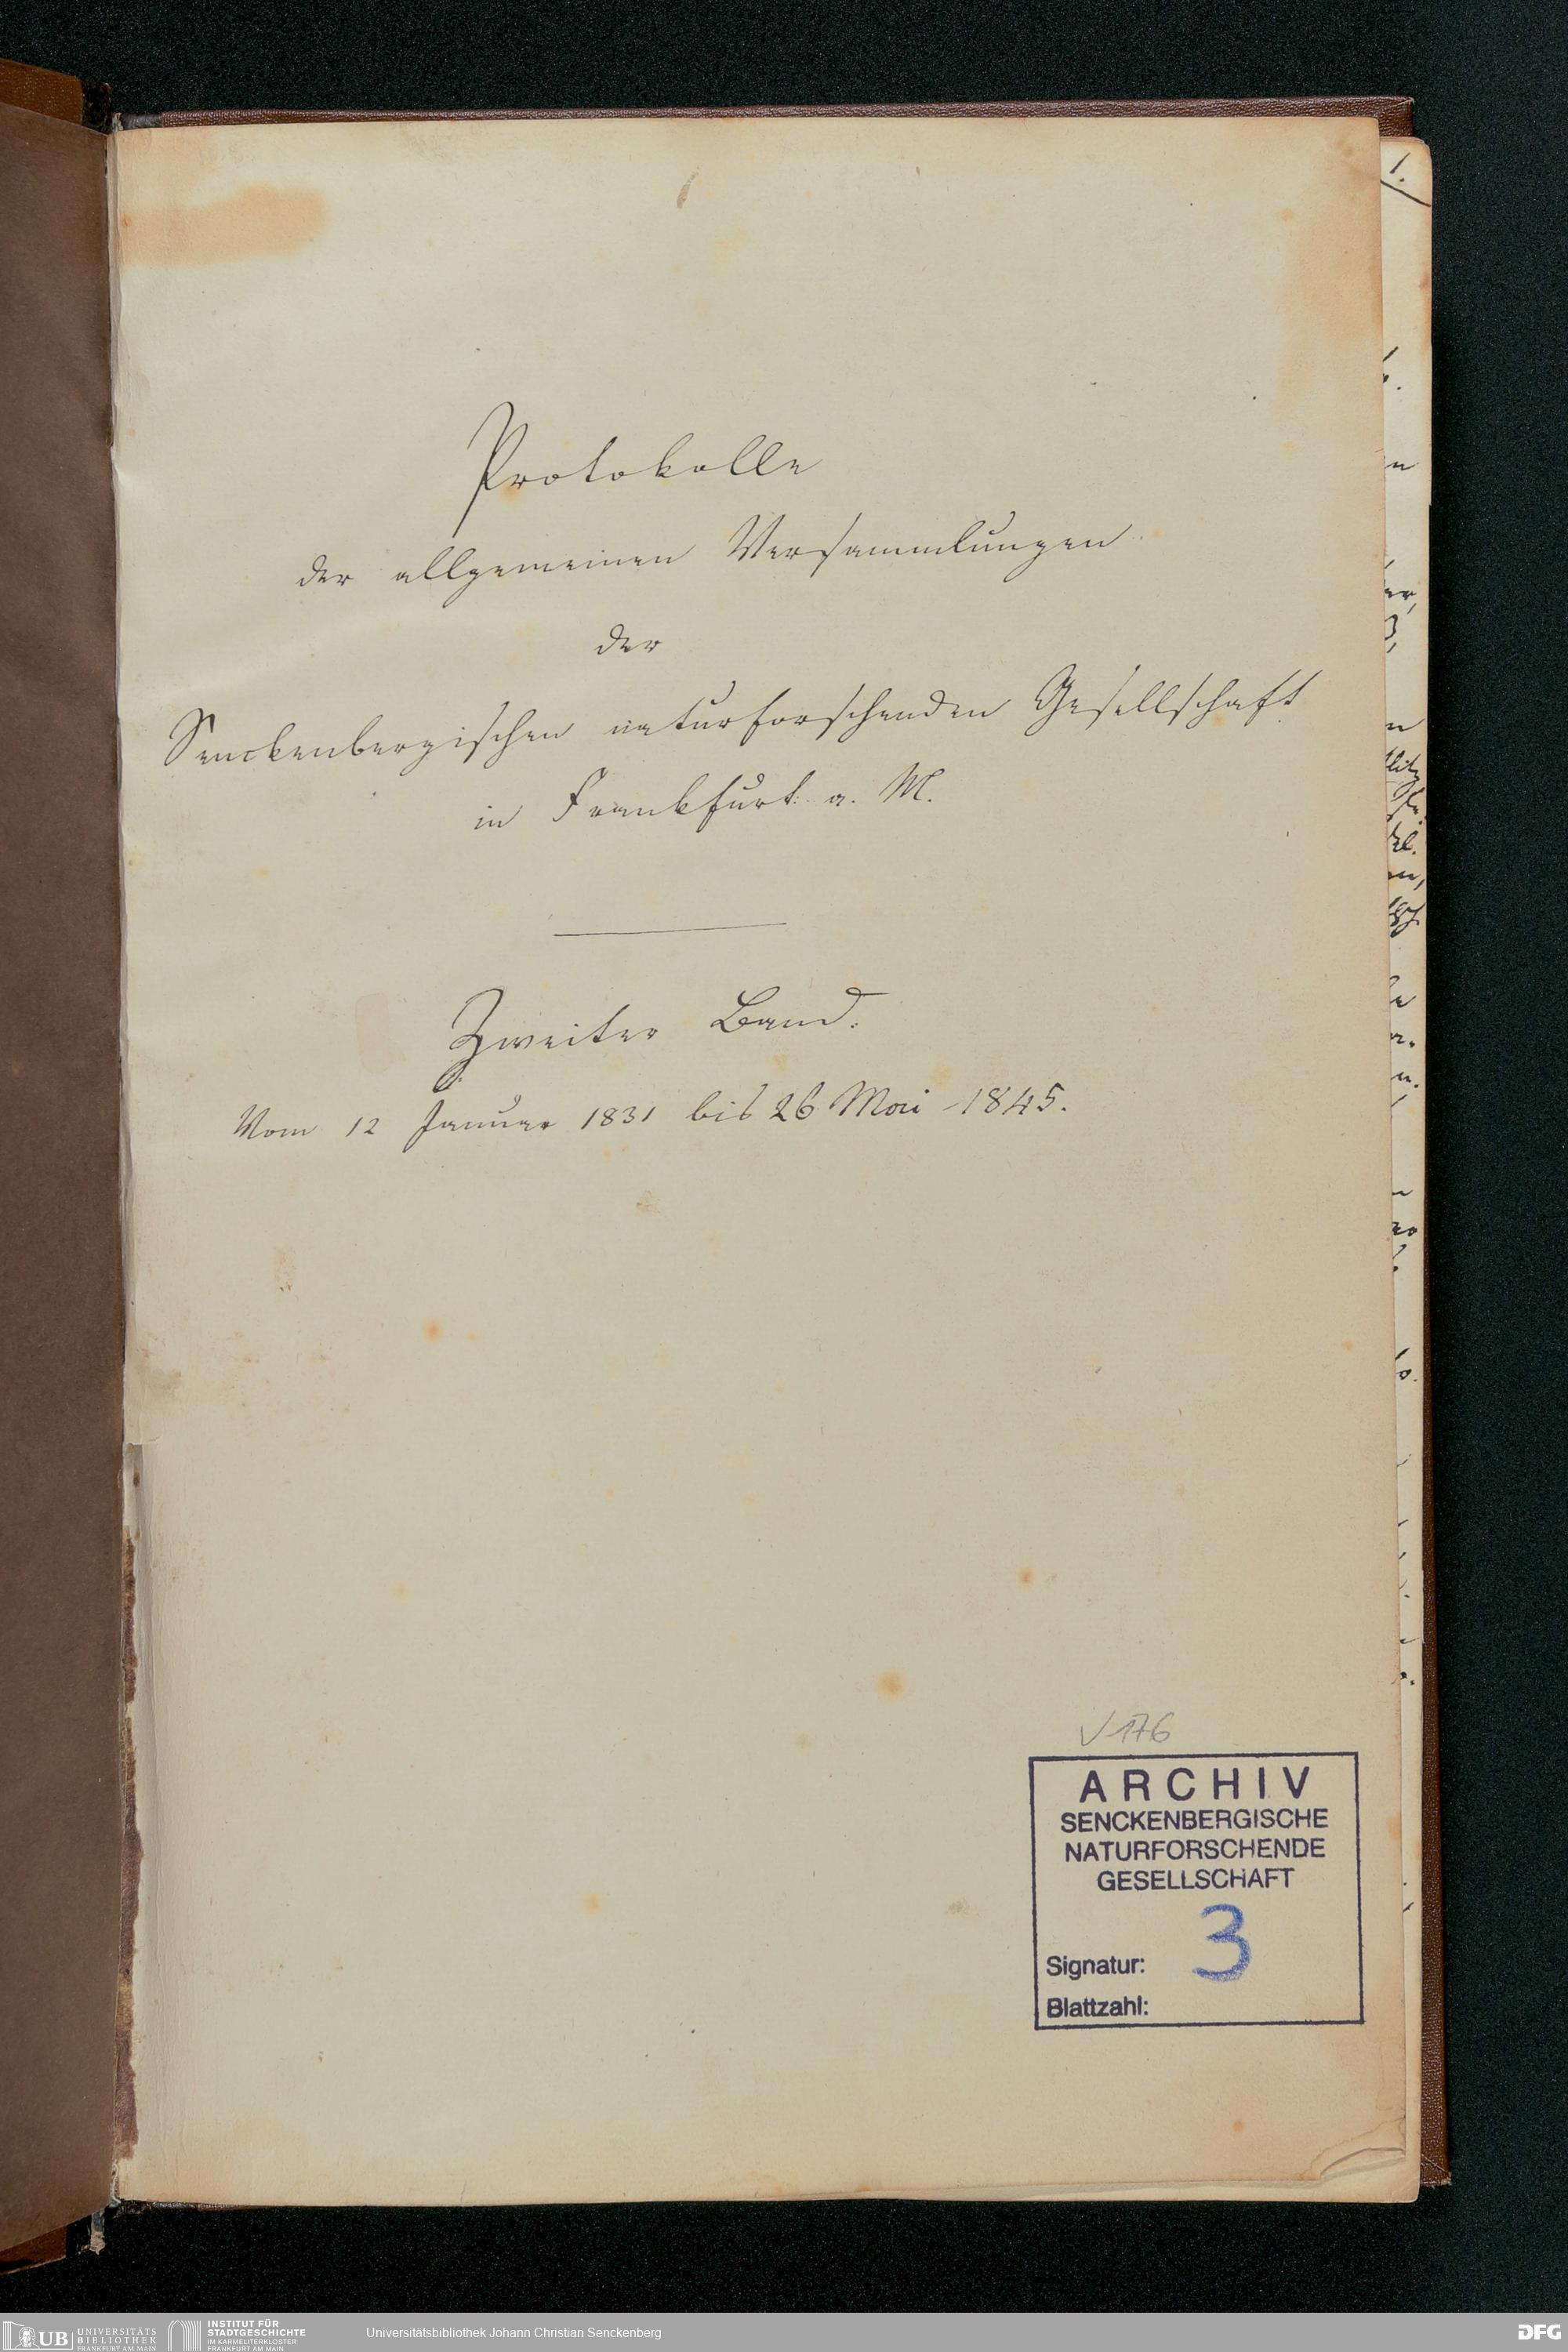 Protokolle
der allgemeinen Versammlungen
der
Senckenbergischen naturforschenden Gesellschaft
in Frankfurt a. M.
Zweiter Band.
Vom 12 Januar 1831 bis 26 Mai 1845.
V 176
ARCHIV
SENCKENBERGISCHE
NATURFORSCHENDE
GESELLSCHAFT
Signatur: 3
Blattzahl:
1.
UB UNIVERSITÄTS
BIBLIOTHEK
FRANKFURT AM MAIN
INSTITUT FÜR
STADTGESCHICHTE
IM KARMELITERKLOSTER
FRANKFURT AM MAIN
Universitätsbibliothek Johann Christian Senckenberg
DFG